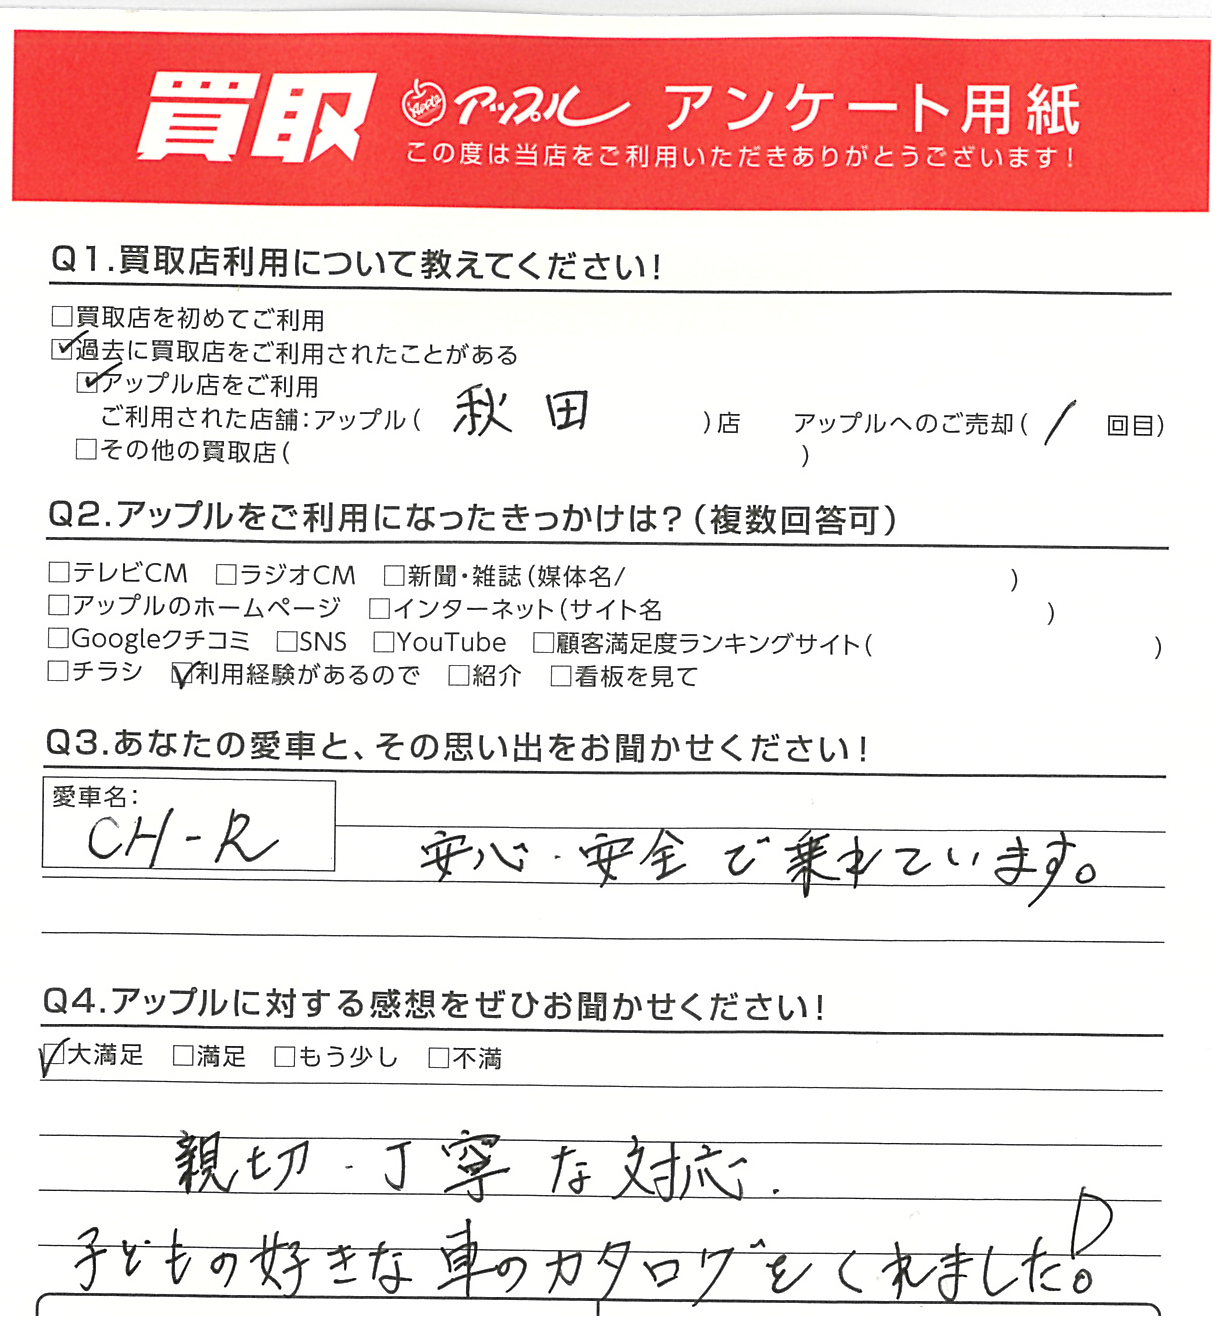 買取 Apple アップル アンケート用紙
この度は当店をご利用いただきありがとうございます!
Q1.買取店利用について教えてください!
□買取店を初めてご利用
☑過去に買取店をご利用されたことがある
☑アップル店をご利用
ご利用された店舗:アップル( 秋田 )店 アップルへのご売却( / 回目)
□その他の買取店( )
Q2.アップルをご利用になったきっかけは?(複数回答可)
□テレビCM □ラジオCM □新聞・雑誌(媒体名/ )
□アップルのホームページ □インターネット(サイト名 )
□Googleクチコミ □SNS □YouTube □顧客満足度ランキングサイト( )
□チラシ ☑利用経験があるので □紹介 □看板を見て
Q3.あなたの愛車と、その思い出をお聞かせください!
愛車名:
CH-R
安心・安全で乗れています。
Q4.アップルに対する感想をぜひお聞かせください!
☑大満足 □満足 □もう少し □不満
親切・丁寧な対応.
子どもの好きな車のカタログをくれました!